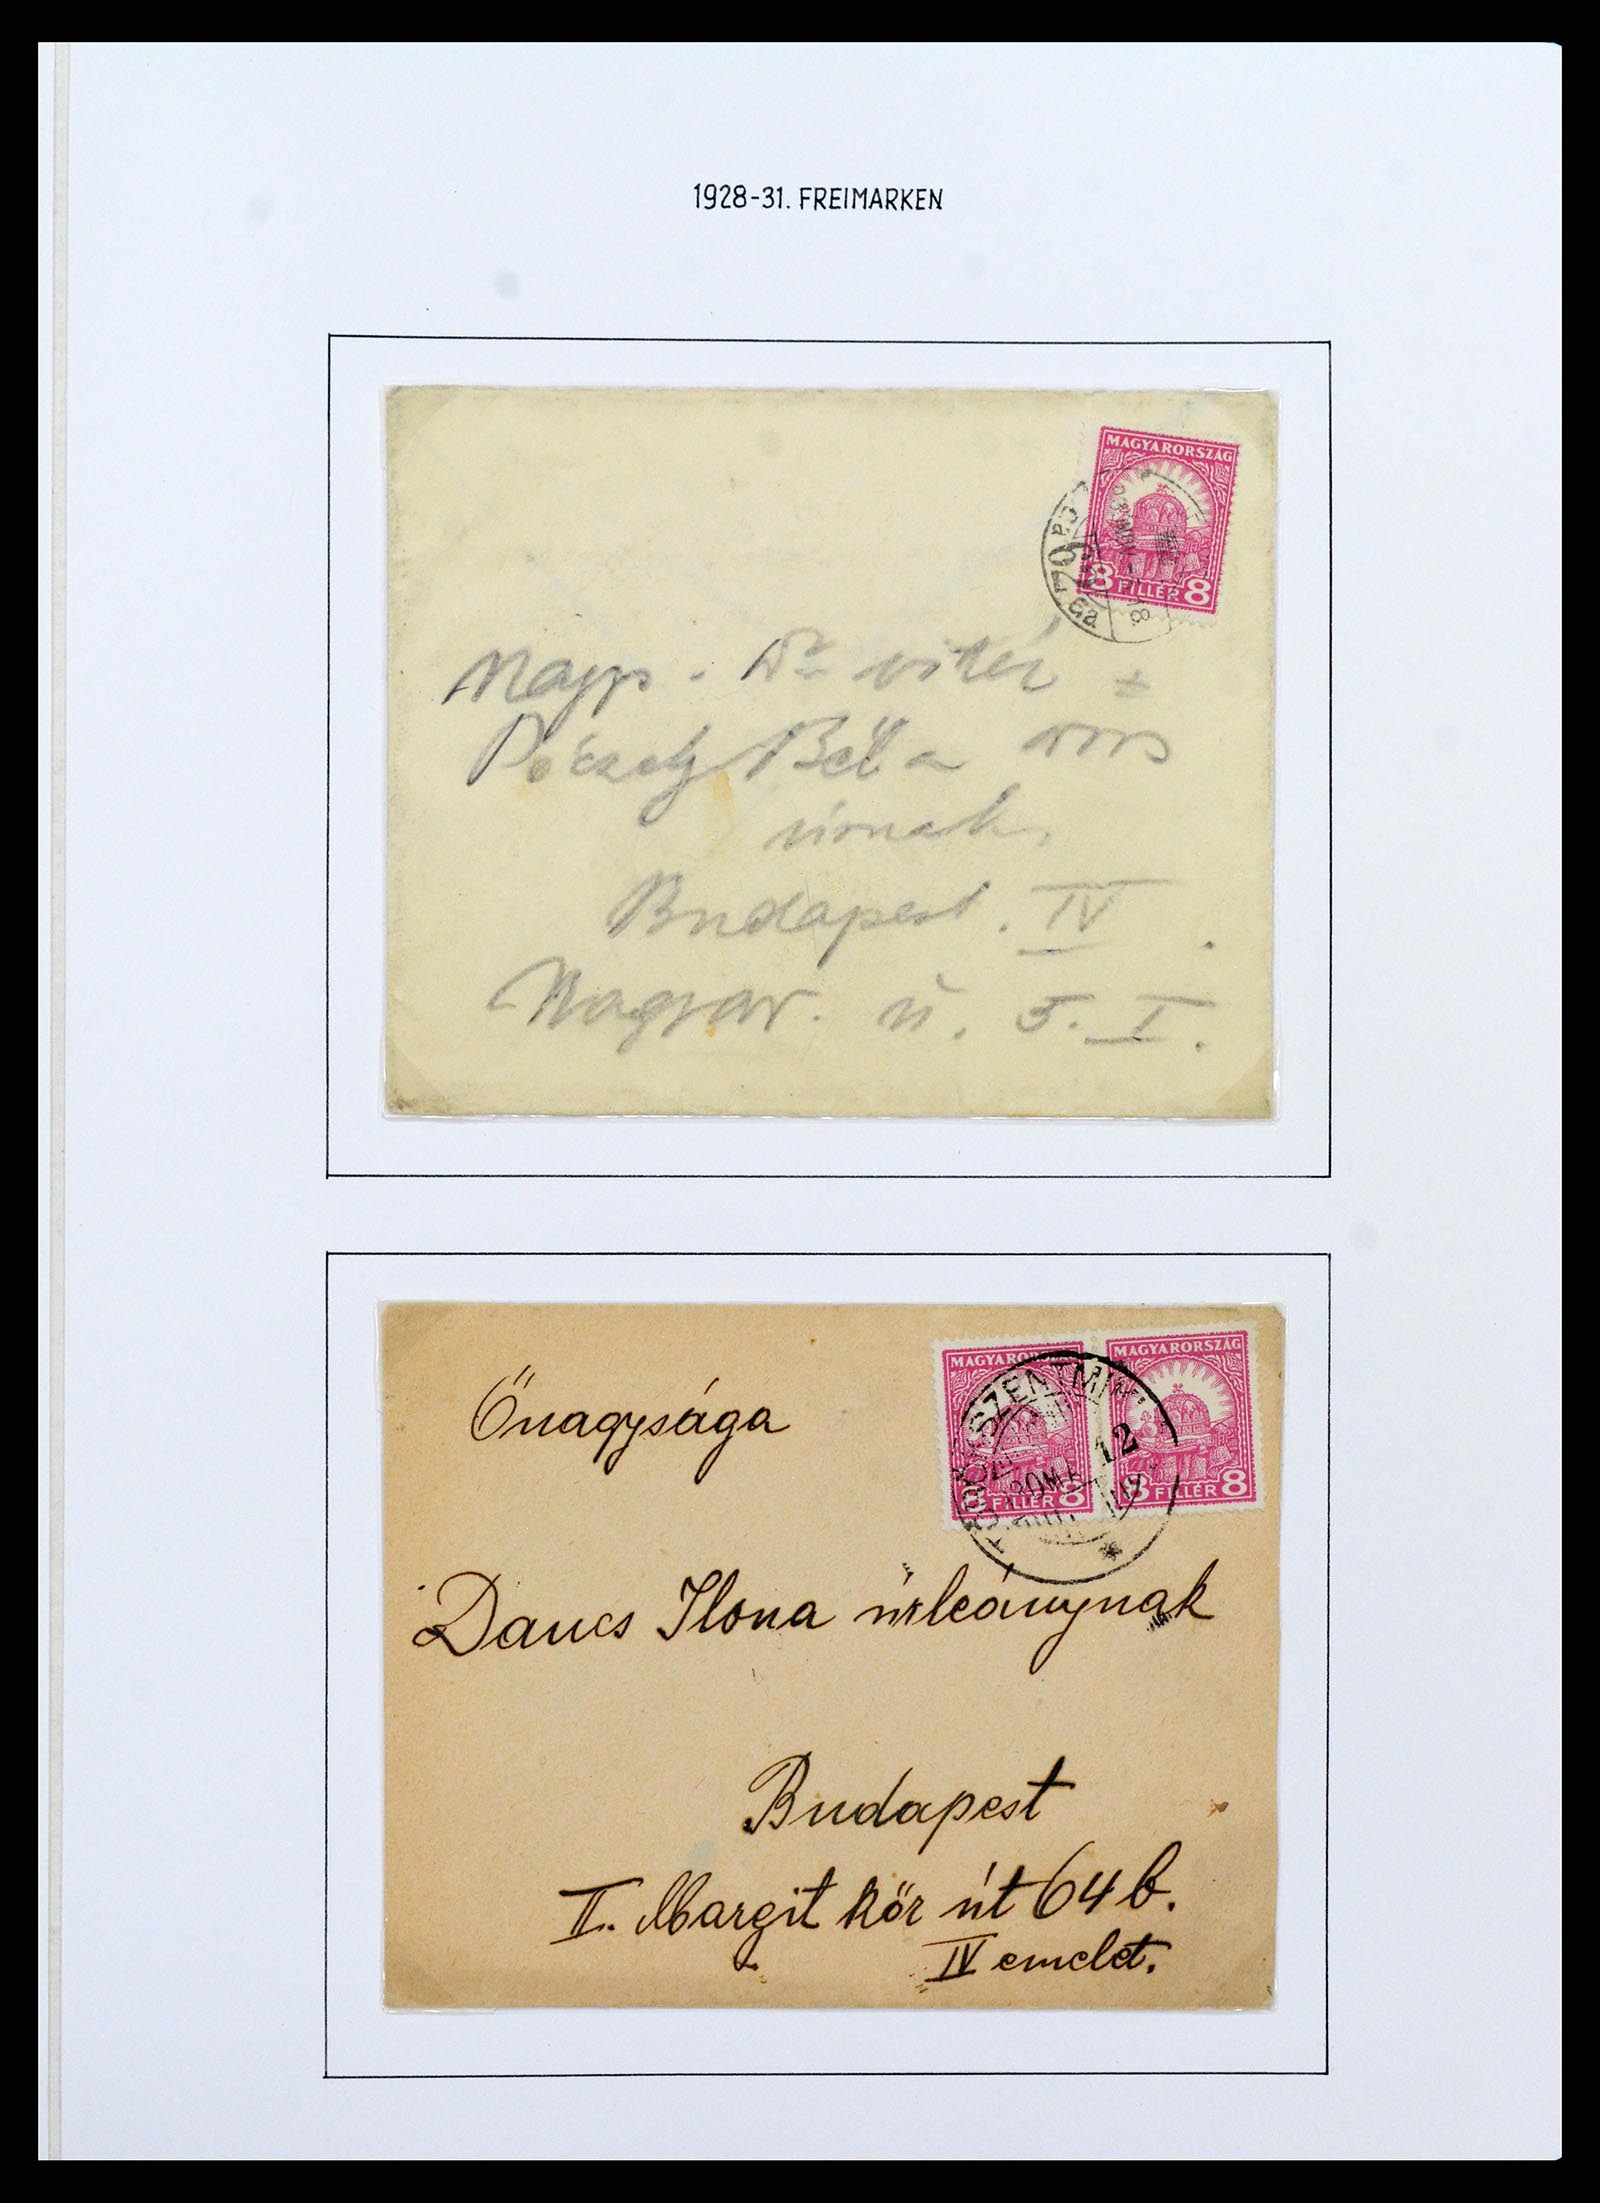 1928-31. FREIMARKEN
MAGYARORSZÁG
8 FILLÉR 8
Nagys. Dr vitéz
Béla
úrnak.
Budapest. IV.
Magyar. u. 5. I.
MAGYARORSZÁG MAGYARORSZÁG
12
8 FILLÉR 8 8 FILLÉR 8
Őnagysága
Dancs Ilona úrleánynak
Budapest
II. Margit kör út 64 b.
IV emelet.